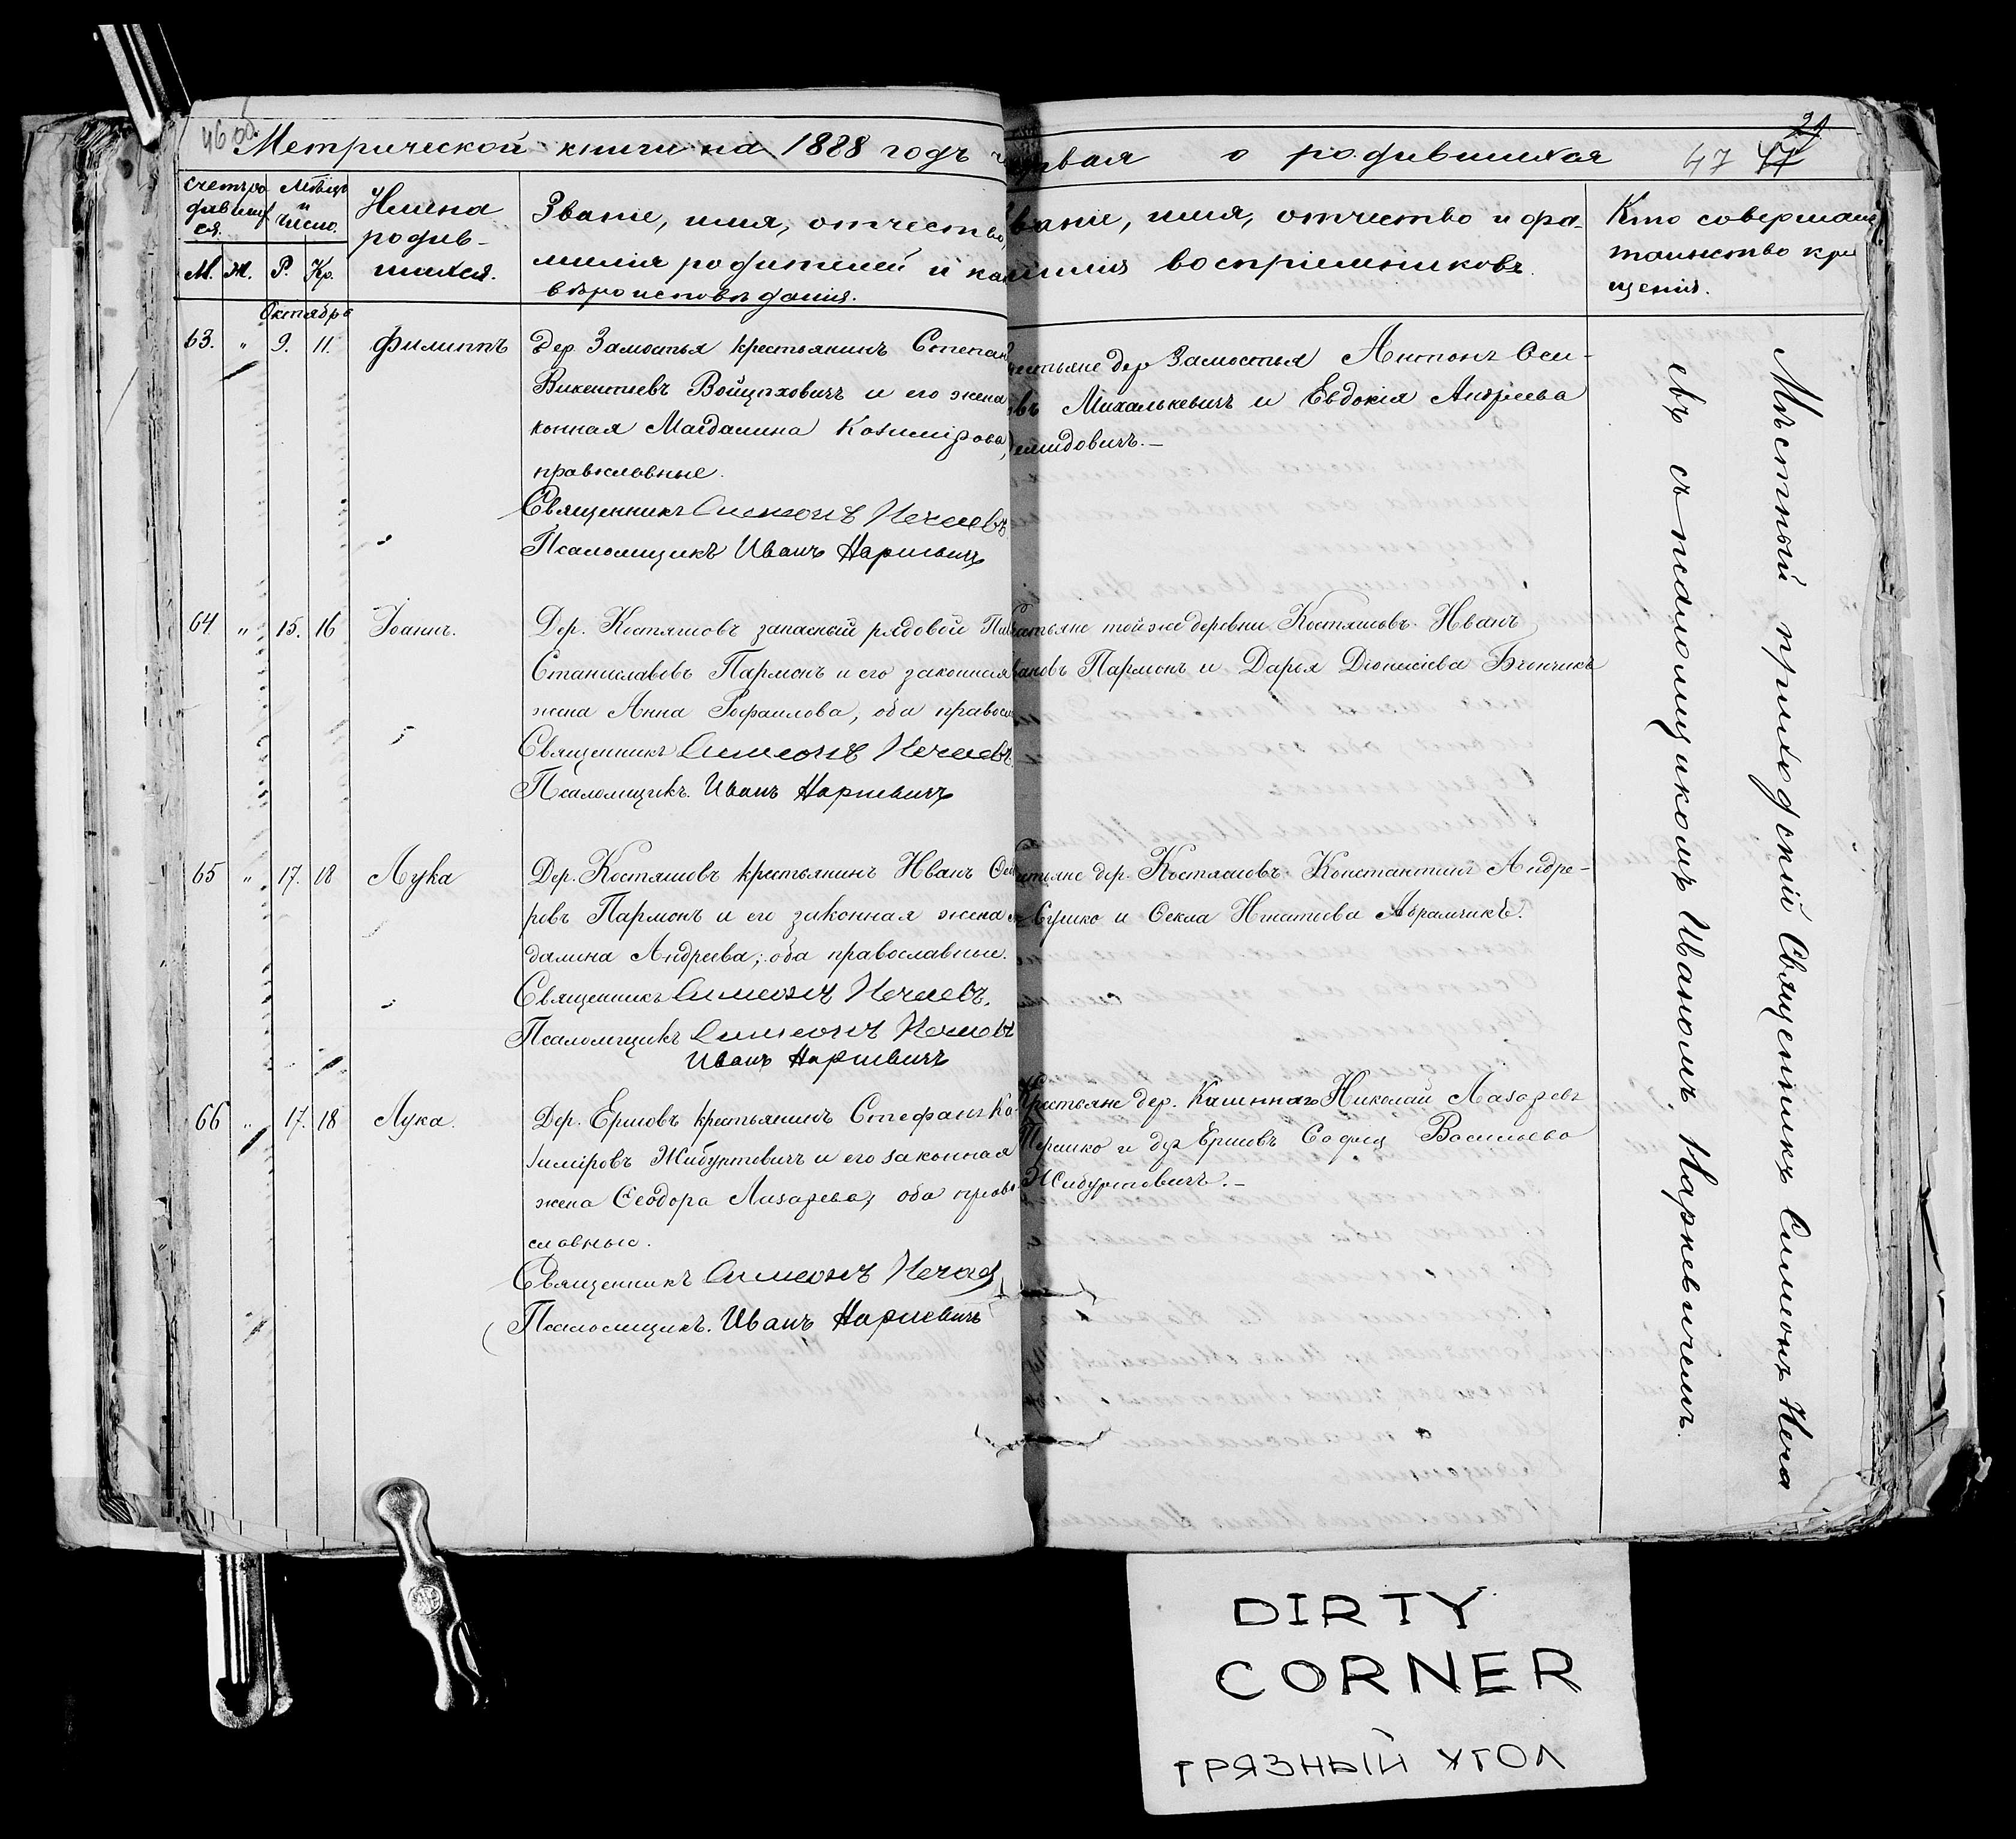 46 об.
Метрической книги на 1888 годъ
первая о родившихся
47
счетъ ро
дившихъ
ся.
Мѣсяцъ
и
число.
Имена
родив-
шихся.
Званіе, имя, отчество,
милія родителей и како
вѣроисповѣданія.
М. Ж. Р. Кр.
Званіе, имя, отчество и фа-
милія воспріемниковъ.
Кто совершалъ
таинство кре
щенія.
Октября
63. " 9. 11. Филиппъ
Дер. Замостья крестьянинъ Степанъ
Викентіевъ Войцѣховичъ и его жена
конная Магдалина Казимірова,
православные.
Священникъ Симеонъ Нечаевъ
Псаломщикъ Иванъ Наркевичъ
крестьяне дер Замостья Антонъ Оси-
овъ Михалькевичъ и Евдокія Андреева
Демидовичъ.-
64 " 15. 16 Іоаннъ.
Дер. Костяшовъ запасный рядовой
Станиславовъ Пармонъ и его законная
жена Анна Рафаилова, оба правосл
Священникъ Симеонъ Нечаевъ.
Псаломщикъ. Иванъ Наркевичъ
крестьяне той же деревни Костяшовъ Иванъ
Ивановъ Пармонъ и Дарья Діонисіева Бѣнчикъ
65 " 17. 18 Лука
Дер. Костяшовъ крестьянинъ Иванъ Оео
ровъ Пармонъ и его законная жена
далина Андреева; оба православные.
Священникъ Симеонъ Нечаевъ.
Псаломщикъ Симеонъ Нечаевъ
Иванъ Наркевичъ
крестьяне дер. Костяшовъ Константинъ Андре-
Сушко и Оекла Игнатіева Абрамчикъ.
66 " 17. 18 Лука.
Дер. Ершовъ крестьянинъ Стефанъ Ка-
зиміровъ Жибуртовичъ и его законная
жена Ѳеодора Лазарева, оба право
славные.
Священникъ Симеонъ Нечаевъ
Псаломщикъ. Иванъ Наркевичъ
Крестьяне дер. Николай Лазаревъ
и дер Ершовъ Софія Васильева
Жибуртовичъ.-
Мѣстный приходскій Священникъ Симеонъ Неча
евъ съ псаломщикомъ Иваномъ Наркевичемъ.
DIRTY
CORNER
ГРЯЗНЫЙ УГОЛ